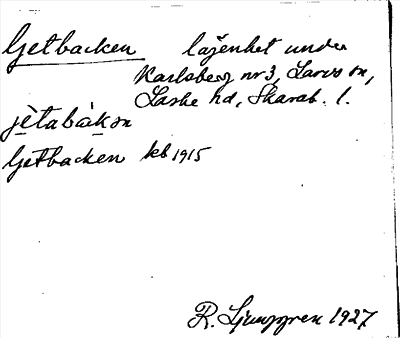 Getbacken lägenhet under
Karlsberg nr 3, Larvs sn,
Laske hd, Skarab. l.
jètabàkən
Getbacken kb 1915
R. Ljunggren 1927